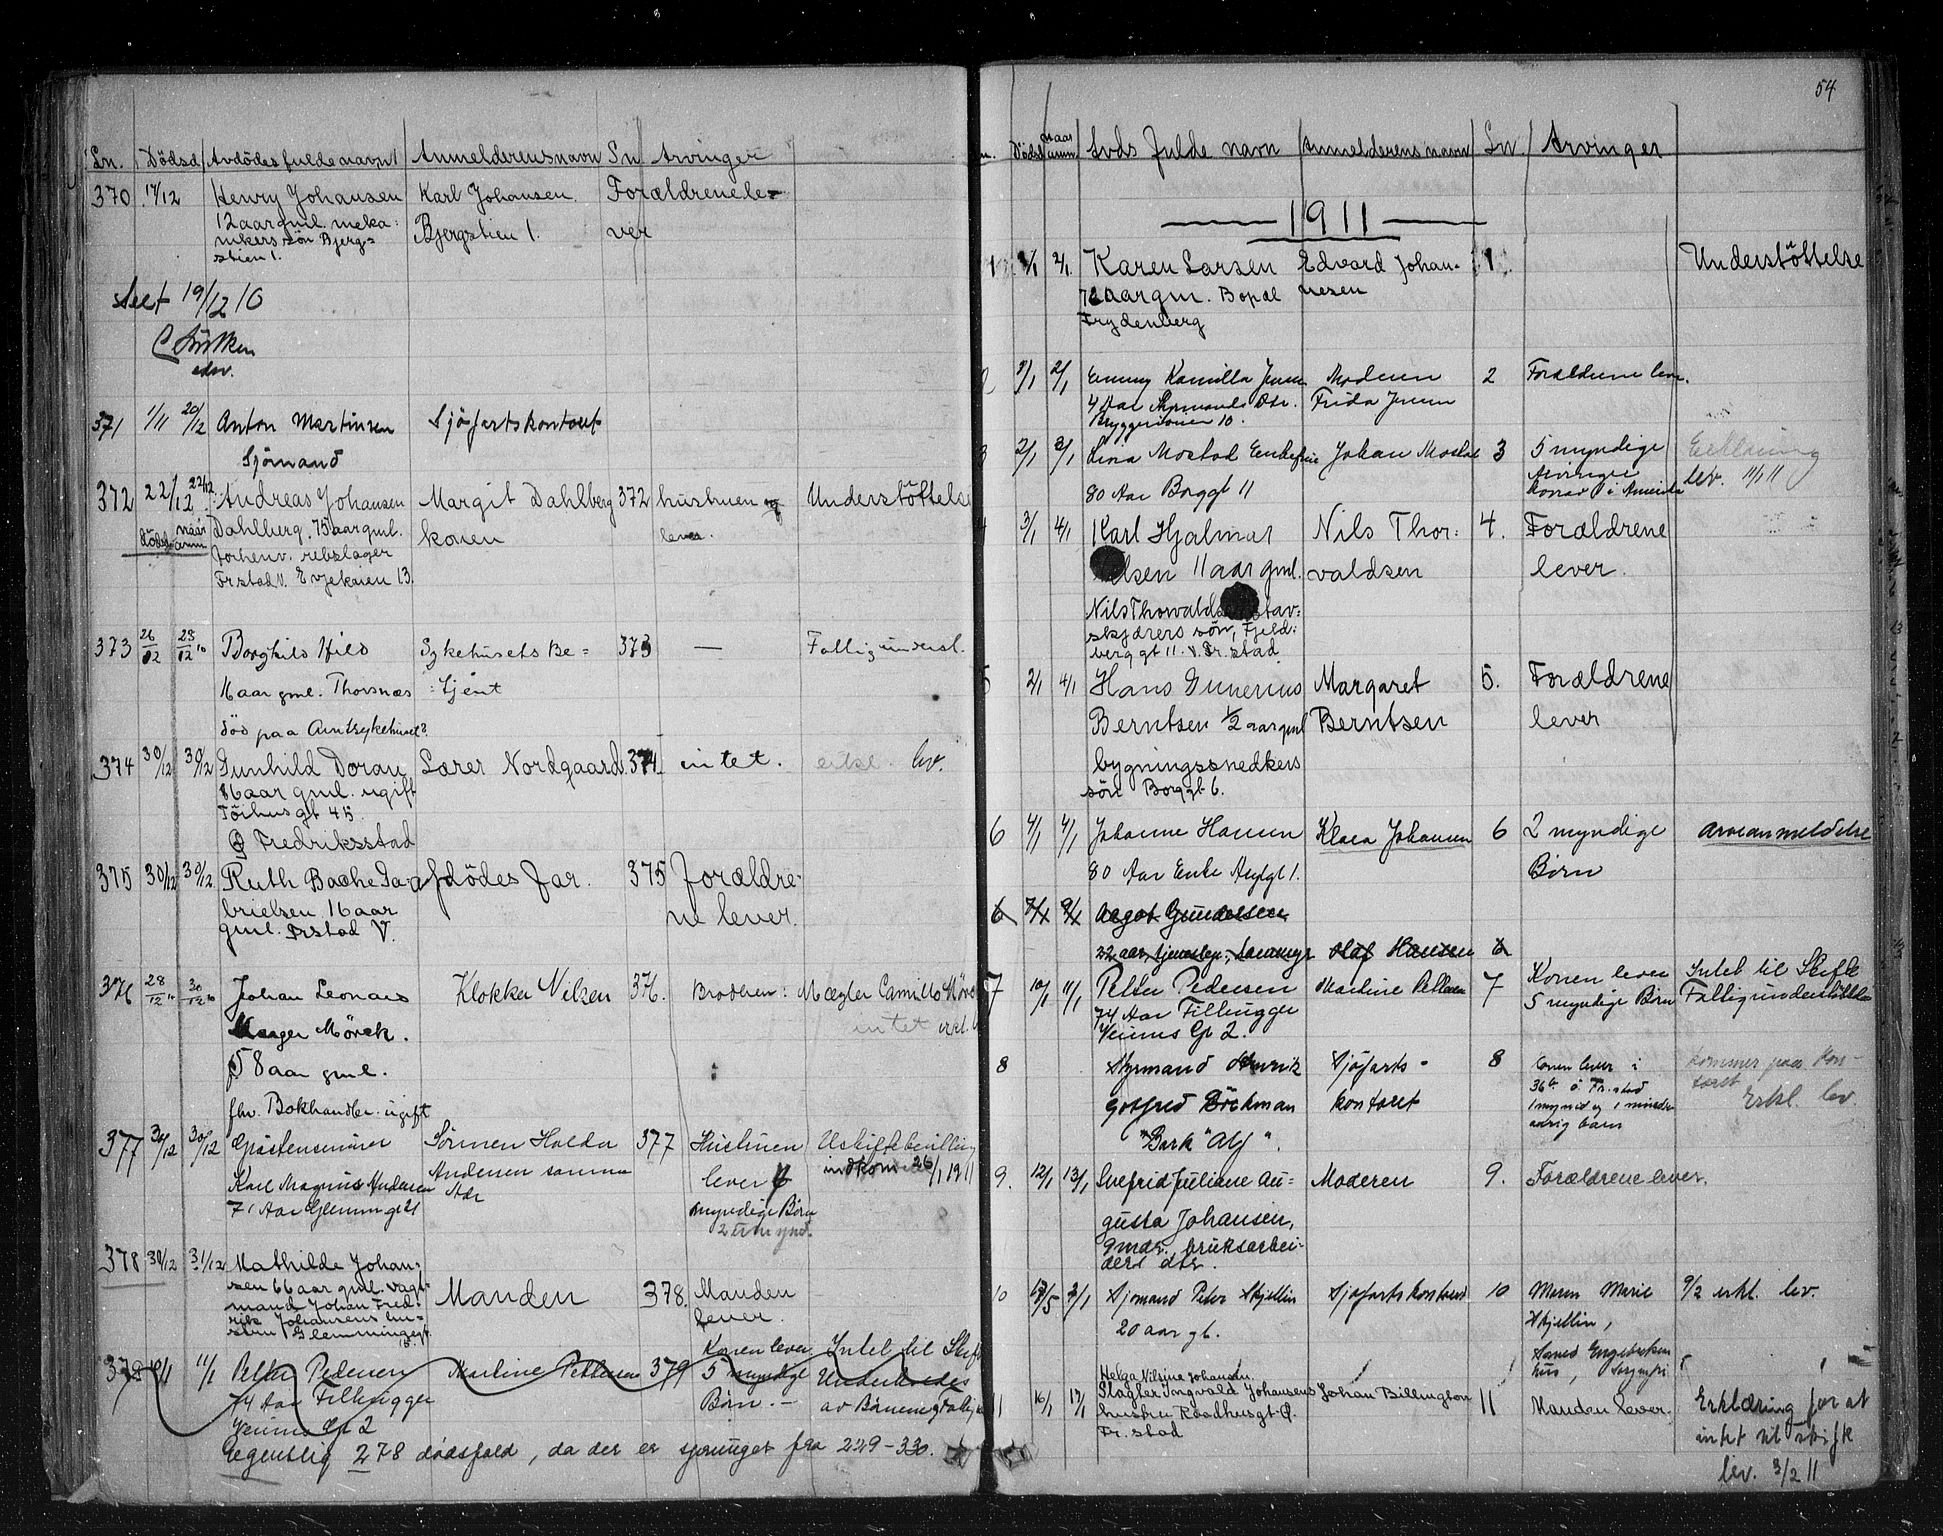 Ln. Dödsd. Avdödes fulde navn Anmelderens navn Sn Arvinger
370 17/12 Henry Johansen Karl Johansen Forældrene le-
12 aar gml. meka- Bjergstien 1. ver
nikers sön Bjerg-
stien 1.
Seet 19/12 10
edsv.
371 1/11 20/12 Anton Martinsen Sjöfartskontoret
Sjömand
372 22/12 22/12 Andreas Johansen Margit Dahlberg 372 hustruen og Understöttelse
Döds naar anm Dahlberg. 75 aar gml. konen lever.
forhenv. rebslager
Frstad V. Evjekaien 13.
373 26/12 28/12 10 Borghild Hild Sykehusets Be = 373 — Fattigunderst.
16 aar gml. Thorsnæs : tjent
död paa Amtsykehuset?
374 30/12 30/12 Gunhild Doran Lærer Nordgaard 374 intet. erkl. lev.
86 aar gml. ugift
Töihusgt 45.
Fredriksstad
375 30/12 30/12 Ruth Bache Ga- Afdödes Far. 375 Forældre-
brielsen, 16 aar ne lever.
gml. Frstad V.
376 28/12 30/12 10 Johan Leonard Klokker Nilsen 376. Broderen: Mægler Camillo Mörck
Mörck. intet erkl.
58 aar gml.
fhv. Bokhandler. ugift
377 30/12 30/12 Gjästgeber Sönnen Halvdan 377 Hustruen Uskiftebevilling
Karl Magnus Andersen Andersen samme lever indkom 26/1 1911
71 Aar Glemmingt 21 Adr myndige Börn
2 umynd.
378 30/12 31/12 Mathilde Johan-
sen 66 aar gml. vagt- Manden 378. Manden
mand Johan Fred- lever.
rik Johansens hu-
stru Glemminggt.
379 10/1 11/1 Petter Pedersen Martine Pettersen 379 Konen lever. Intet til Skifte
74 Aar Fillingger 5 myndige Underholdes
Veiums Gt 2 Börn. — av Börnene og Fattig
Egentlig 278 dödsfald, da der er sprunget fra 229-330.
54
Döds naar anm Avds fulde navn Anmelderens navn Ln Arvinger
1911
1 1/1 2/1 Karen Larsen Edvard Johan- 1. Understöttelse
aar gm. Bopæl nesen
Frydenberg
2 1/1 2/1 Emmy Kamilla Jensen Moderen 2 Forældrene lever.
4 Aar Styrmands Dtr. Frida Jensen
Bryggeriveien 10.
3 2/1 3/1 Lina Mostad Enkefrue Johan Mostad 3 5 myndige Erklæring
80 Aar Borggt 11 Arvinger lev. 11/1 11
Konrad i Amerika
4 3/1 4/1 Karl Hjalmar Nils Thor: 4. Forældrene
lsen 11 aar gml. valdsen lever.
Nils Thorvalds stav-
skjærers sön, Fjeld-
berggt 11. V. Fr.stad
5 2/1 4/1 Hans Gunerius Margaret 5. Forældrene
Berntsen 1/2 aar gml Berntsen lever
bygningssnedkers
sön Borggt 6.
6 4/1 4/1 Johanne Hansen Klara Johansen 6 2 myndige Arveanmeldelse
80 Aar Enke Nygt 1. Börn
6 7/1 9/1 Aagot Gundersen
22 aar, tjenestep., Olaf Hansen 6
7 10/1 11/1 Petter Pedersen Martine Pettersen 7 Konen lever Intet til Skifte
74 Aar Fillingger 5 myndige Börn Fattigunderstöttelse
Veiums Gt 2.
8 Styrmand Henrik Sjöfarts- 8 Konen lever i kommer paa kon-
Gotfred Böckman kontoret Fr.stad toret
"Bark "Alf". 1 mynd og 1 minder- Erkl. lev.
aarig barn
9. 12/1 13/1 Snefrid Juliane Au- Moderen 9. Forældrene lever.
gusta Johansen,
9 mdr., bruksarbei-
ders dtr.
10 3/1 Sjömand Peter Skjellin Sjöfartskontoret 10 Moren Marie 9/2 erkl. lev.
20 aar gl. Skjellin,
Helga Nilsine Johansen.
11 16/1 17/1 Slagter Ingvald Johansens Johan Billington 11 Manden lever. Erklæring for at
hustru Raadhusgt. intet til skifte
Fr.stad lev. 3/2 11